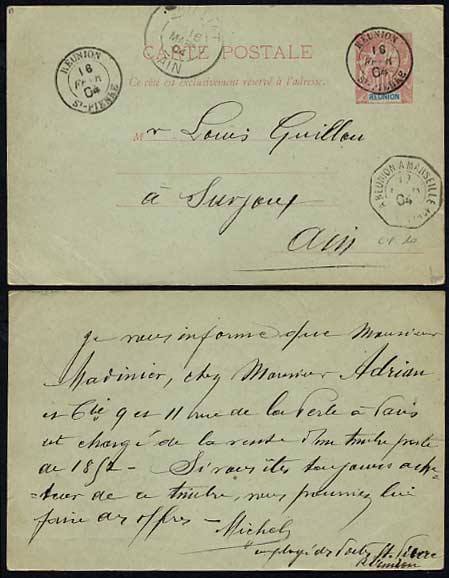 RÉUNION
16
FEVR
04
ST-PIERRE
16
MARS
04
AIN
CARTE POSTALE
Ce côté est exclusivement réservé à l'adresse.
RÉUNION
16
FEVR
04
ST-PIERRE
RÉUNION
Mr Louis Guillon
à Surjoux
Ain
LA RÉUNION A MARSEILLE
17
04
Je vous informe que Monsieur
Madinier, chez Monsieur Adrian
et Cie 9 et 11 rue de la Perle à Paris
est chargé de la vente d'un timbre poste
de 1852 - Si vous êtes toujours ache-
-teur de ce timbre, vous pourriez lui
faire des offres -
Michel
employé des Postes St. Pierre
Réunion